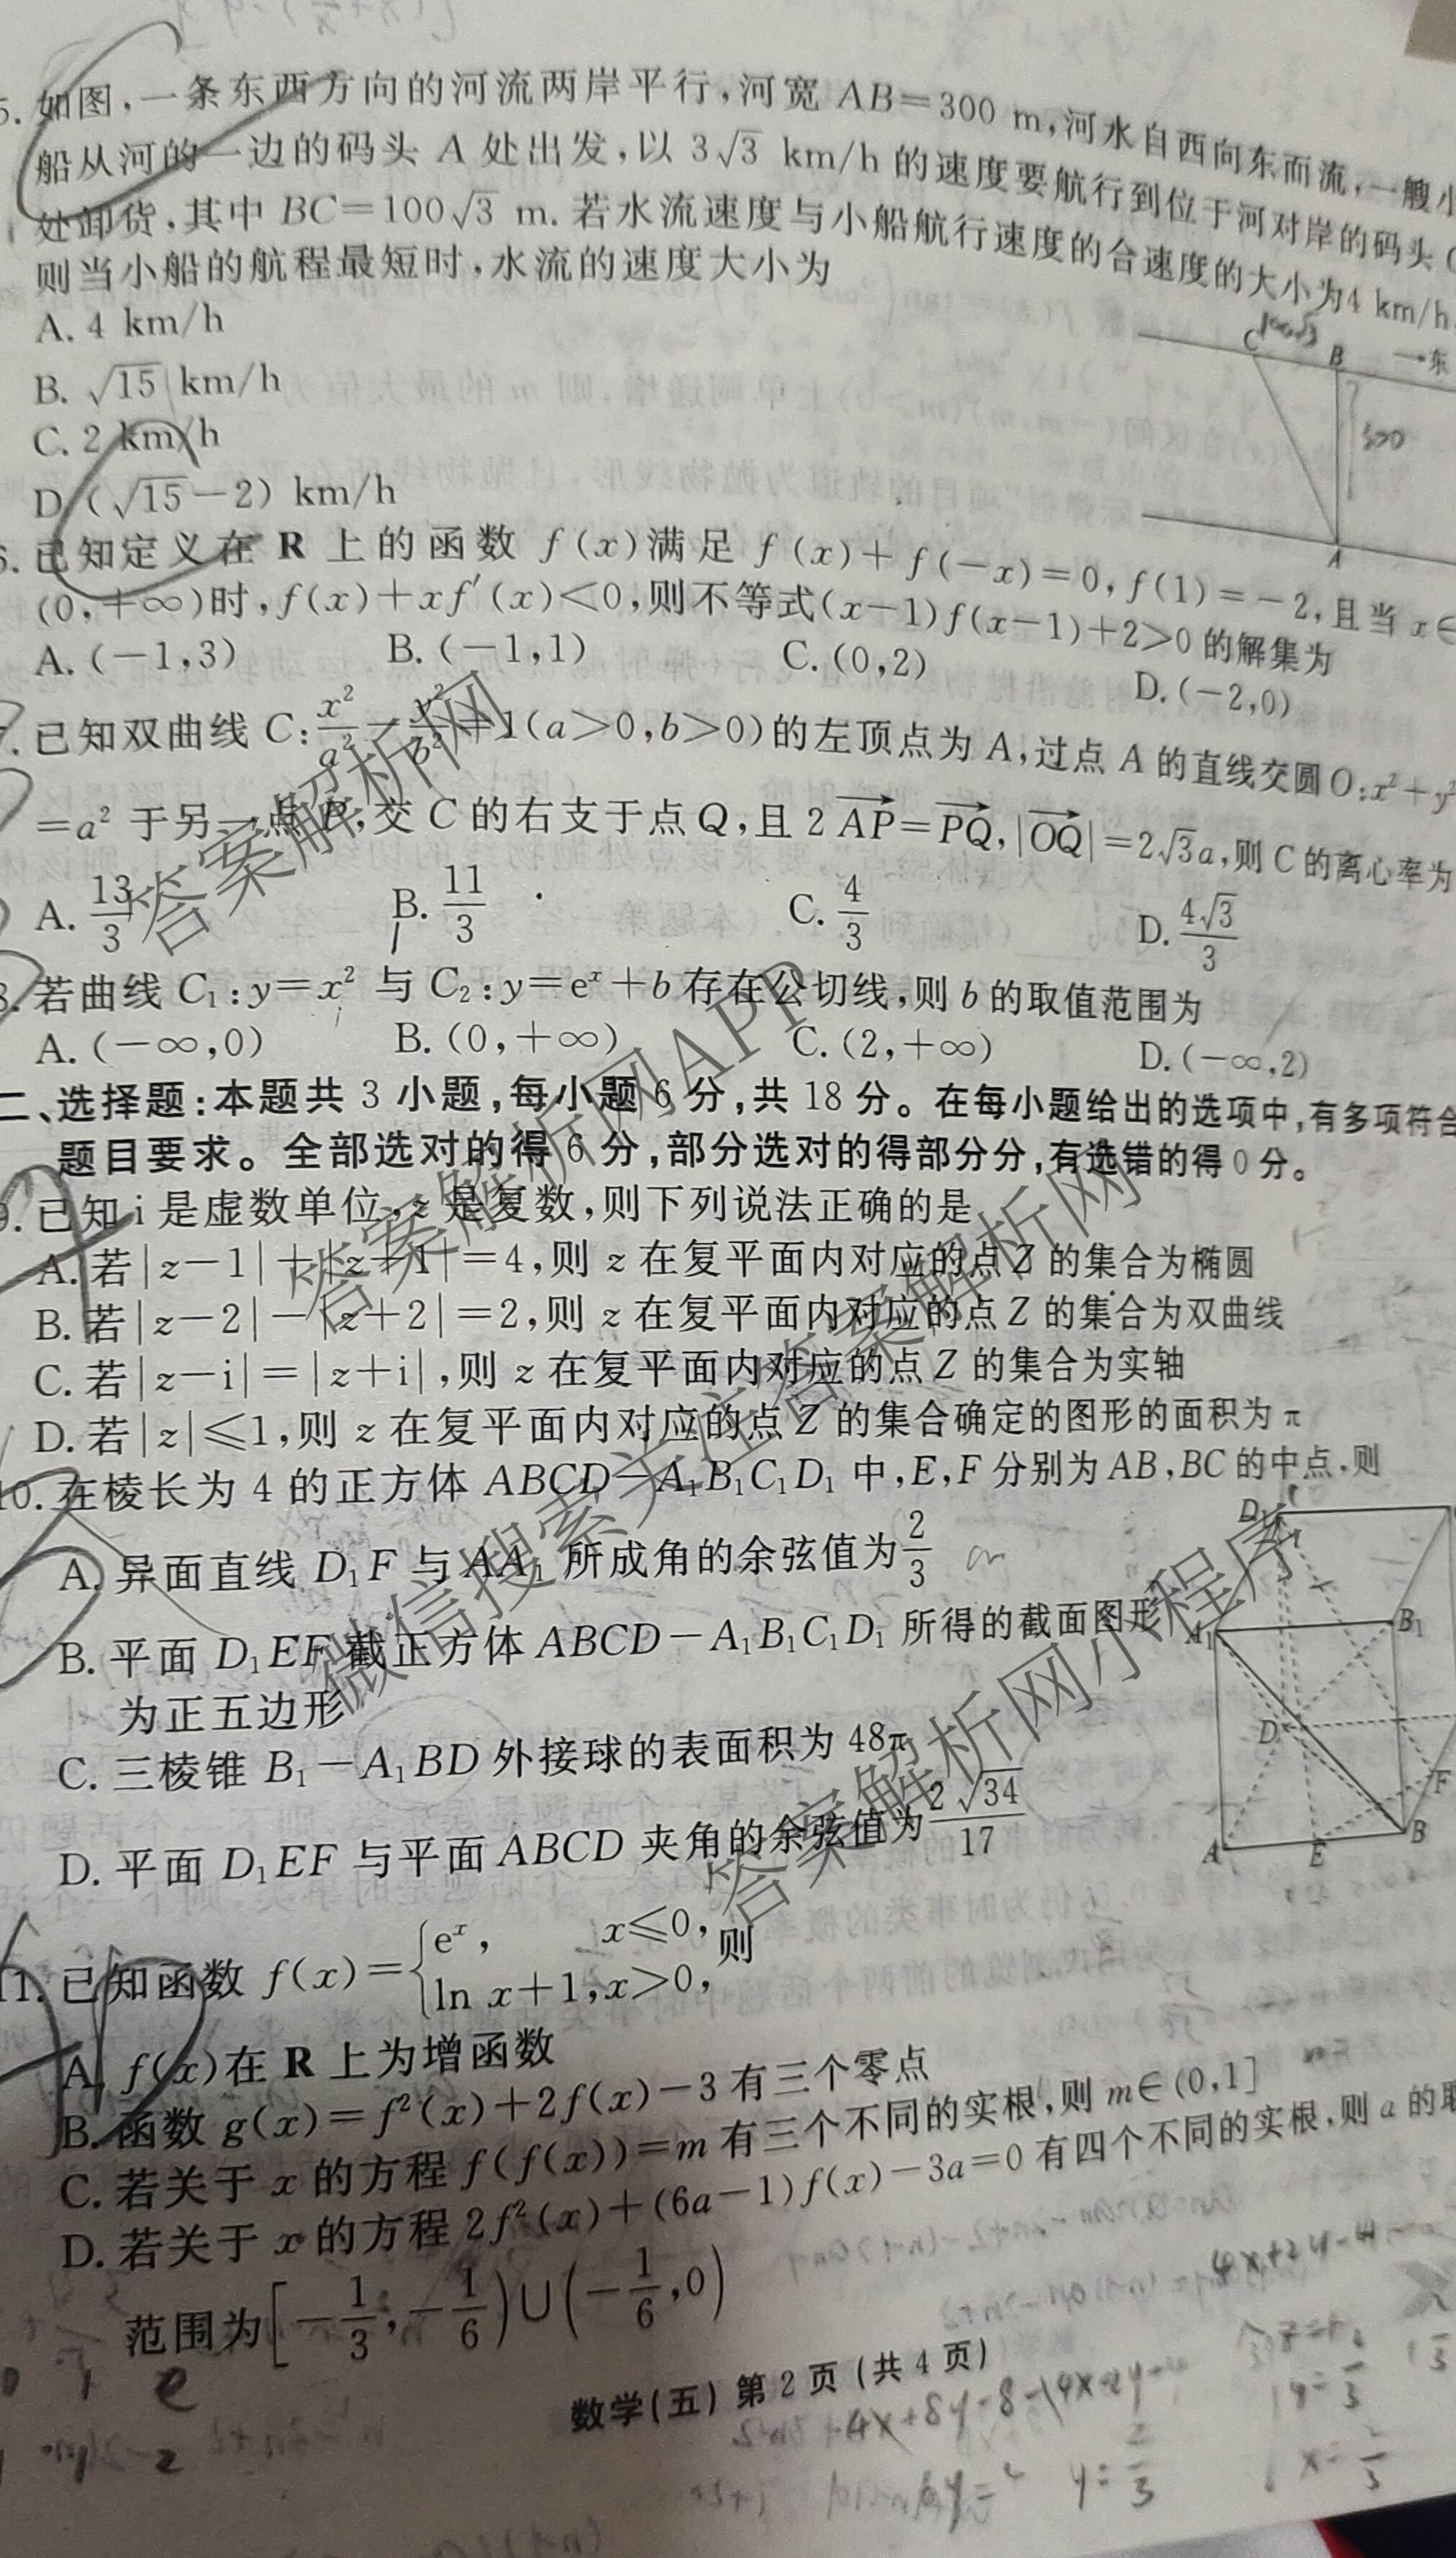 5. 如图,一条东西方向的河流两岸平行,河宽 AB=300 m,河水自西向东而流,一艘小
船从河的一边的码头 A 处出发,以 3√3 km/h 的速度要航行到位于河对岸的码头 C
处卸货,其中 BC=100√3 m. 若水流速度与小船航行速度的合速度的大小为4 km/h,
则当小船的航程最短时,水流的速度大小为
A. 4 km/h
B. √15 km/h
C. 2 km/h
D. (√15-2) km/h
C 100√3 B →东
300
A
6. 已知定义在 R 上的函数 f(x)满足 f(x)+f(-x)=0,f(1)=-2,且当 x∈
(0,+∞)时,f(x)+xf′(x)<0,则不等式(x-1)f(x-1)+2>0 的解集为
A. (-1,3) B. (-1,1) C. (0,2) D. (-2,0)
7. 已知双曲线 C:x²/a²-y²/b²=1(a>0,b>0)的左顶点为 A,过点 A 的直线交圆O:x²+y²
=a² 于另一点 P,交 C 的右支于点 Q,且 2AP=PQ,|OQ|=2√3a,则 C 的离心率为
A. 13/3 B. 11/3 C. 4/3 D. 4√3/3
8. 若曲线 C₁:y=x² 与 C₂:y=eˣ+b 存在公切线,则 b 的取值范围为
A. (-∞,0) B. (0,+∞) C. (2,+∞) D. (-∞,2)
二、选择题:本题共 3 小题,每小题 6 分,共 18 分。在每小题给出的选项中,有多项符合
题目要求。全部选对的得 6 分,部分选对的得部分分,有选错的得 0 分。
9. 已知 i 是虚数单位,z 是复数,则下列说法正确的是
A. 若|z-1|+|z+1|=4,则 z 在复平面内对应的点 Z 的集合为椭圆
B. 若|z-2|-|z+2|=2,则 z 在复平面内对应的点 Z 的集合为双曲线
C. 若|z-i|=|z+i|,则 z 在复平面内对应的点 Z 的集合为实轴
D. 若|z|≤1,则 z 在复平面内对应的点 Z 的集合确定的图形的面积为 π
10. 在棱长为 4 的正方体 ABCD-A₁B₁C₁D₁ 中,E,F 分别为 AB,BC 的中点,则
A. 异面直线 D₁F 与 AA₁ 所成角的余弦值为2/3
B. 平面 D₁EF 截正方体 ABCD-A₁B₁C₁D₁ 所得的截面图形
为正五边形
C. 三棱锥 B₁-A₁BD 外接球的表面积为 48π
D. 平面 D₁EF 与平面 ABCD 夹角的余弦值为2√34/17
D₁
A₁ B₁
D
F
A E B
11. 已知函数 f(x)={eˣ, x≤0, ln x+1,x>0, 则
A. f(x)在 R 上为增函数
B. 函数 g(x)=f²(x)+2f(x)-3 有三个零点
C. 若关于 x 的方程 f(f(x))=m 有三个不同的实根,则 m∈(0,1]
D. 若关于 x 的方程 2f²(x)+(6a-1)f(x)-3a=0 有四个不同的实根,则 a 的取
范围为[-1/3,-1/6)∪(-1/6,0)
数学(五) 第 2 页 (共 4 页)
答案解析网
答案解析网APP
微信搜索关注答案解析网
答案解析网小程序